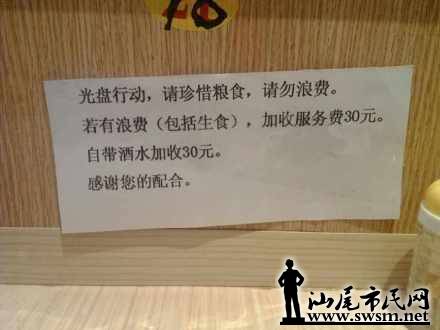 光盘行动，请珍惜粮食，请勿浪费。
若有浪费（包括生食），加收服务费30元。
自带酒水加收30元。
感谢您的配合。
汕尾市民网
www.swsm.net